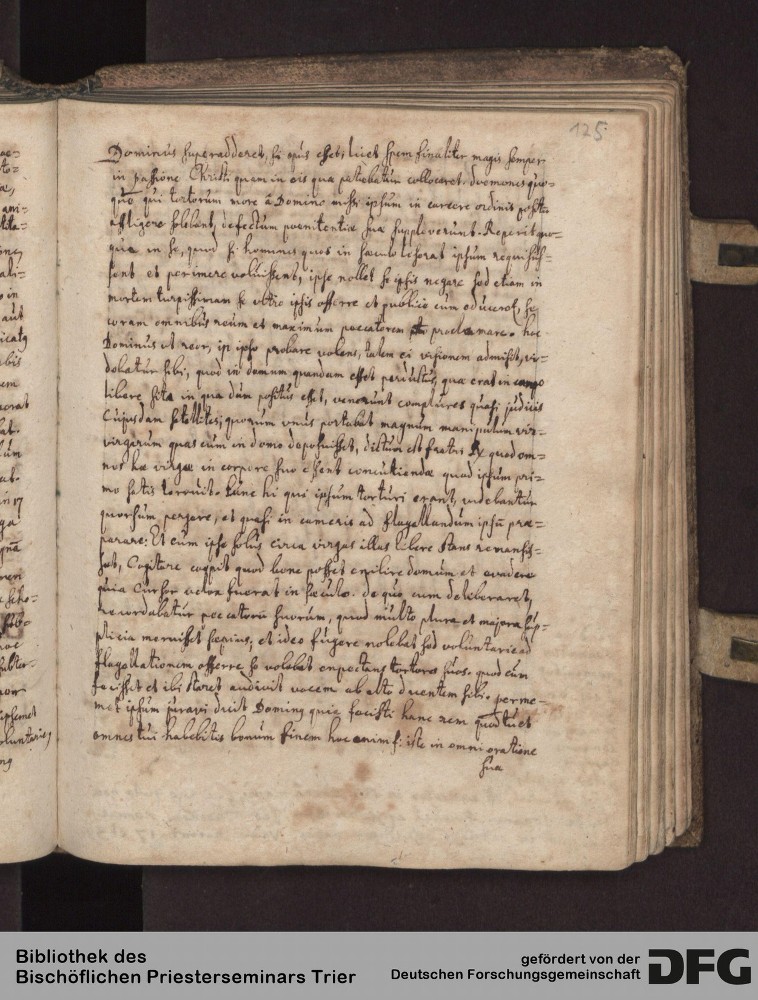 125
Dominus superadderet, si opus esset, licet spem finaliter magis semper
in passione Christi quam in eis quæ patiebatur collocaret. dæmones quo-
quæ qui tortorum more à Domino missi ipsum in carcere ordinis positum
affligere solebant, defectum pœnitentiæ suæ suppleverunt. Reperit quo-
que in se, quod si homines quos in sæculo læserat ipsum requisiis-
sent et perimere voluissent, ipse nollet se ipsis negare sed etiam in
mortem turpissimam se ultro ipsis offerre et publice cum educeret, se
coram omnibus reum et maximum peccatorem proclamare. hoc
Dominus ut reor, in ipso probare volens, talem ei visionem admisit, vi-
debatur sibi, quod in domum quandam esset perductus, quæ erat in campo
libere sita in qua dum positus esset, venerunt complures quasi judicis
Cujusdam satellites; quorum unus portabat magnum manipulum vir-
virgarum quas cum in domo deposuisset, dictum est fratri quod om-
nes hæ virgæ in corpore suo essent concutiendæ quod ipsum pri-
mo satis terruit. tunc hi qui ipsum torturi erant, videbantur
quorsum pergere, et quasi in cameris ad flagellandum ipsū præ-
parare: Et cum ipse solus circa virgas illas libere stans remansis-
set, Cogitare coepit quod bene posset exilire domum et evadere
quia Cursor velox fuerat in sæculo. de quo cum deliberaret,
recordabatur peccatorū suorum, quod multo plura et majora sup-
plicia meruisset sæpius, et ideo fugere nolebat sed voluntarie ad
flagellationem offerre se volebat expectans tortores suos. quod cum
fecisset et ibi staret audivit vocem ab alto dicentem sibi. perme-
met ipsum juravi dicit Dominus quia fecisti hanc rem quod tu et
omnes tui habebitis bonum finem hoc enim f: iste in omni oratione
sua
Bibliothek des
Bischöflichen Priesterseminars Trier
gefördert von der
Deutschen Forschungsgemeinschaft
DFG